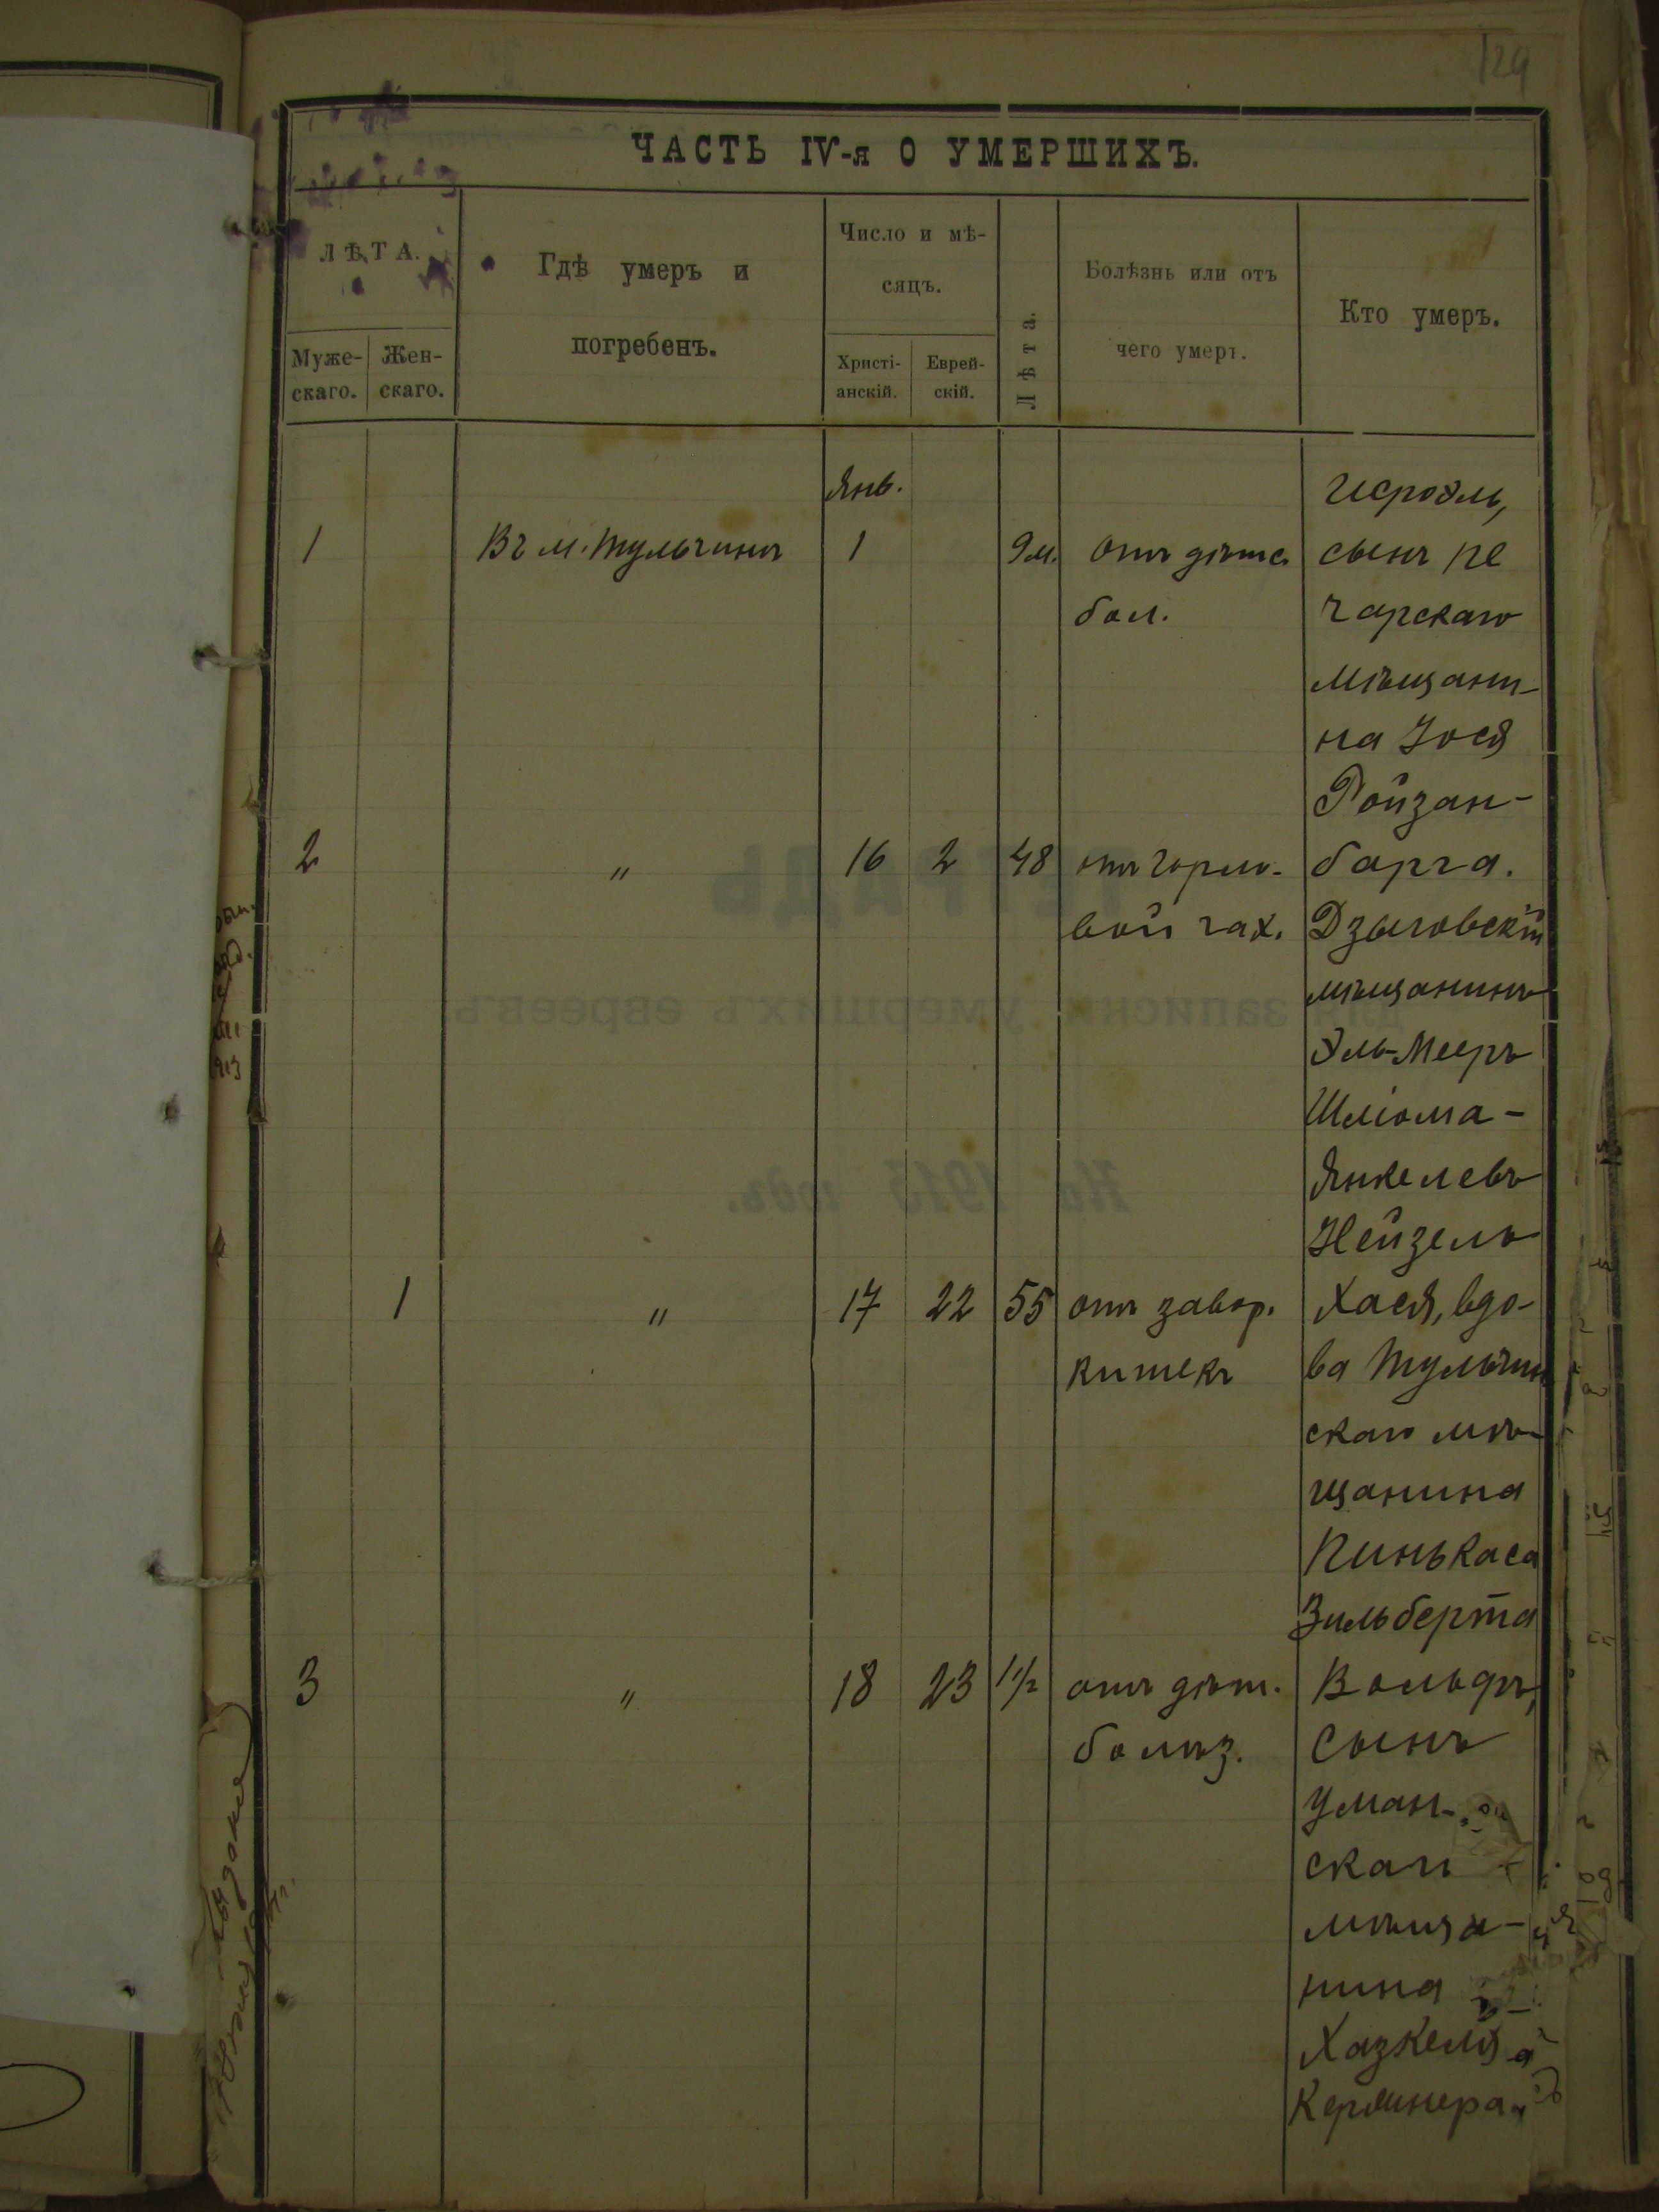 129
ЧАСТЬ IV-я О УМЕРШИХЪ.
ЛѢТА.
Муже-
скаго.
Жен-
скаго.
Гдѣ умеръ и
погребенъ.
Число и мѣ-
сяцъ.
Христі-
анскій.
Еврей-
скій.
Лѣта.
Болѣзнь или отъ
чего умеръ.
Кто умеръ.
Янв.
1 Въ м. Тульчинѣ 1 9 м. отъ дѣтс.
бол.
Исроэль,
сынъ Пе
чарскаго
мѣщани-
на Іося
Ройзан-
барга.
2 " 16 2 48 отъ горло-
вой чах.
Дзыговскій
мѣщанинъ
Эль-Мееръ
Шліома-
Янкелевъ
Нейзель
1 " 17 22 55 отъ завор.
кишекъ
Хася, вдо-
ва Тульчин
скаго мѣ-
щанина
Пинькаса
Зильберта
3 " 18 23 1 1/2 отъ дѣт.
болѣз.
Вольфъ,
сынъ
Уман-
скаго
мѣща-
нина
Хазкеля
Кержнера
ТЕТРАДЬ
для записки умершихъ евреевъ.
На 1913 годъ.